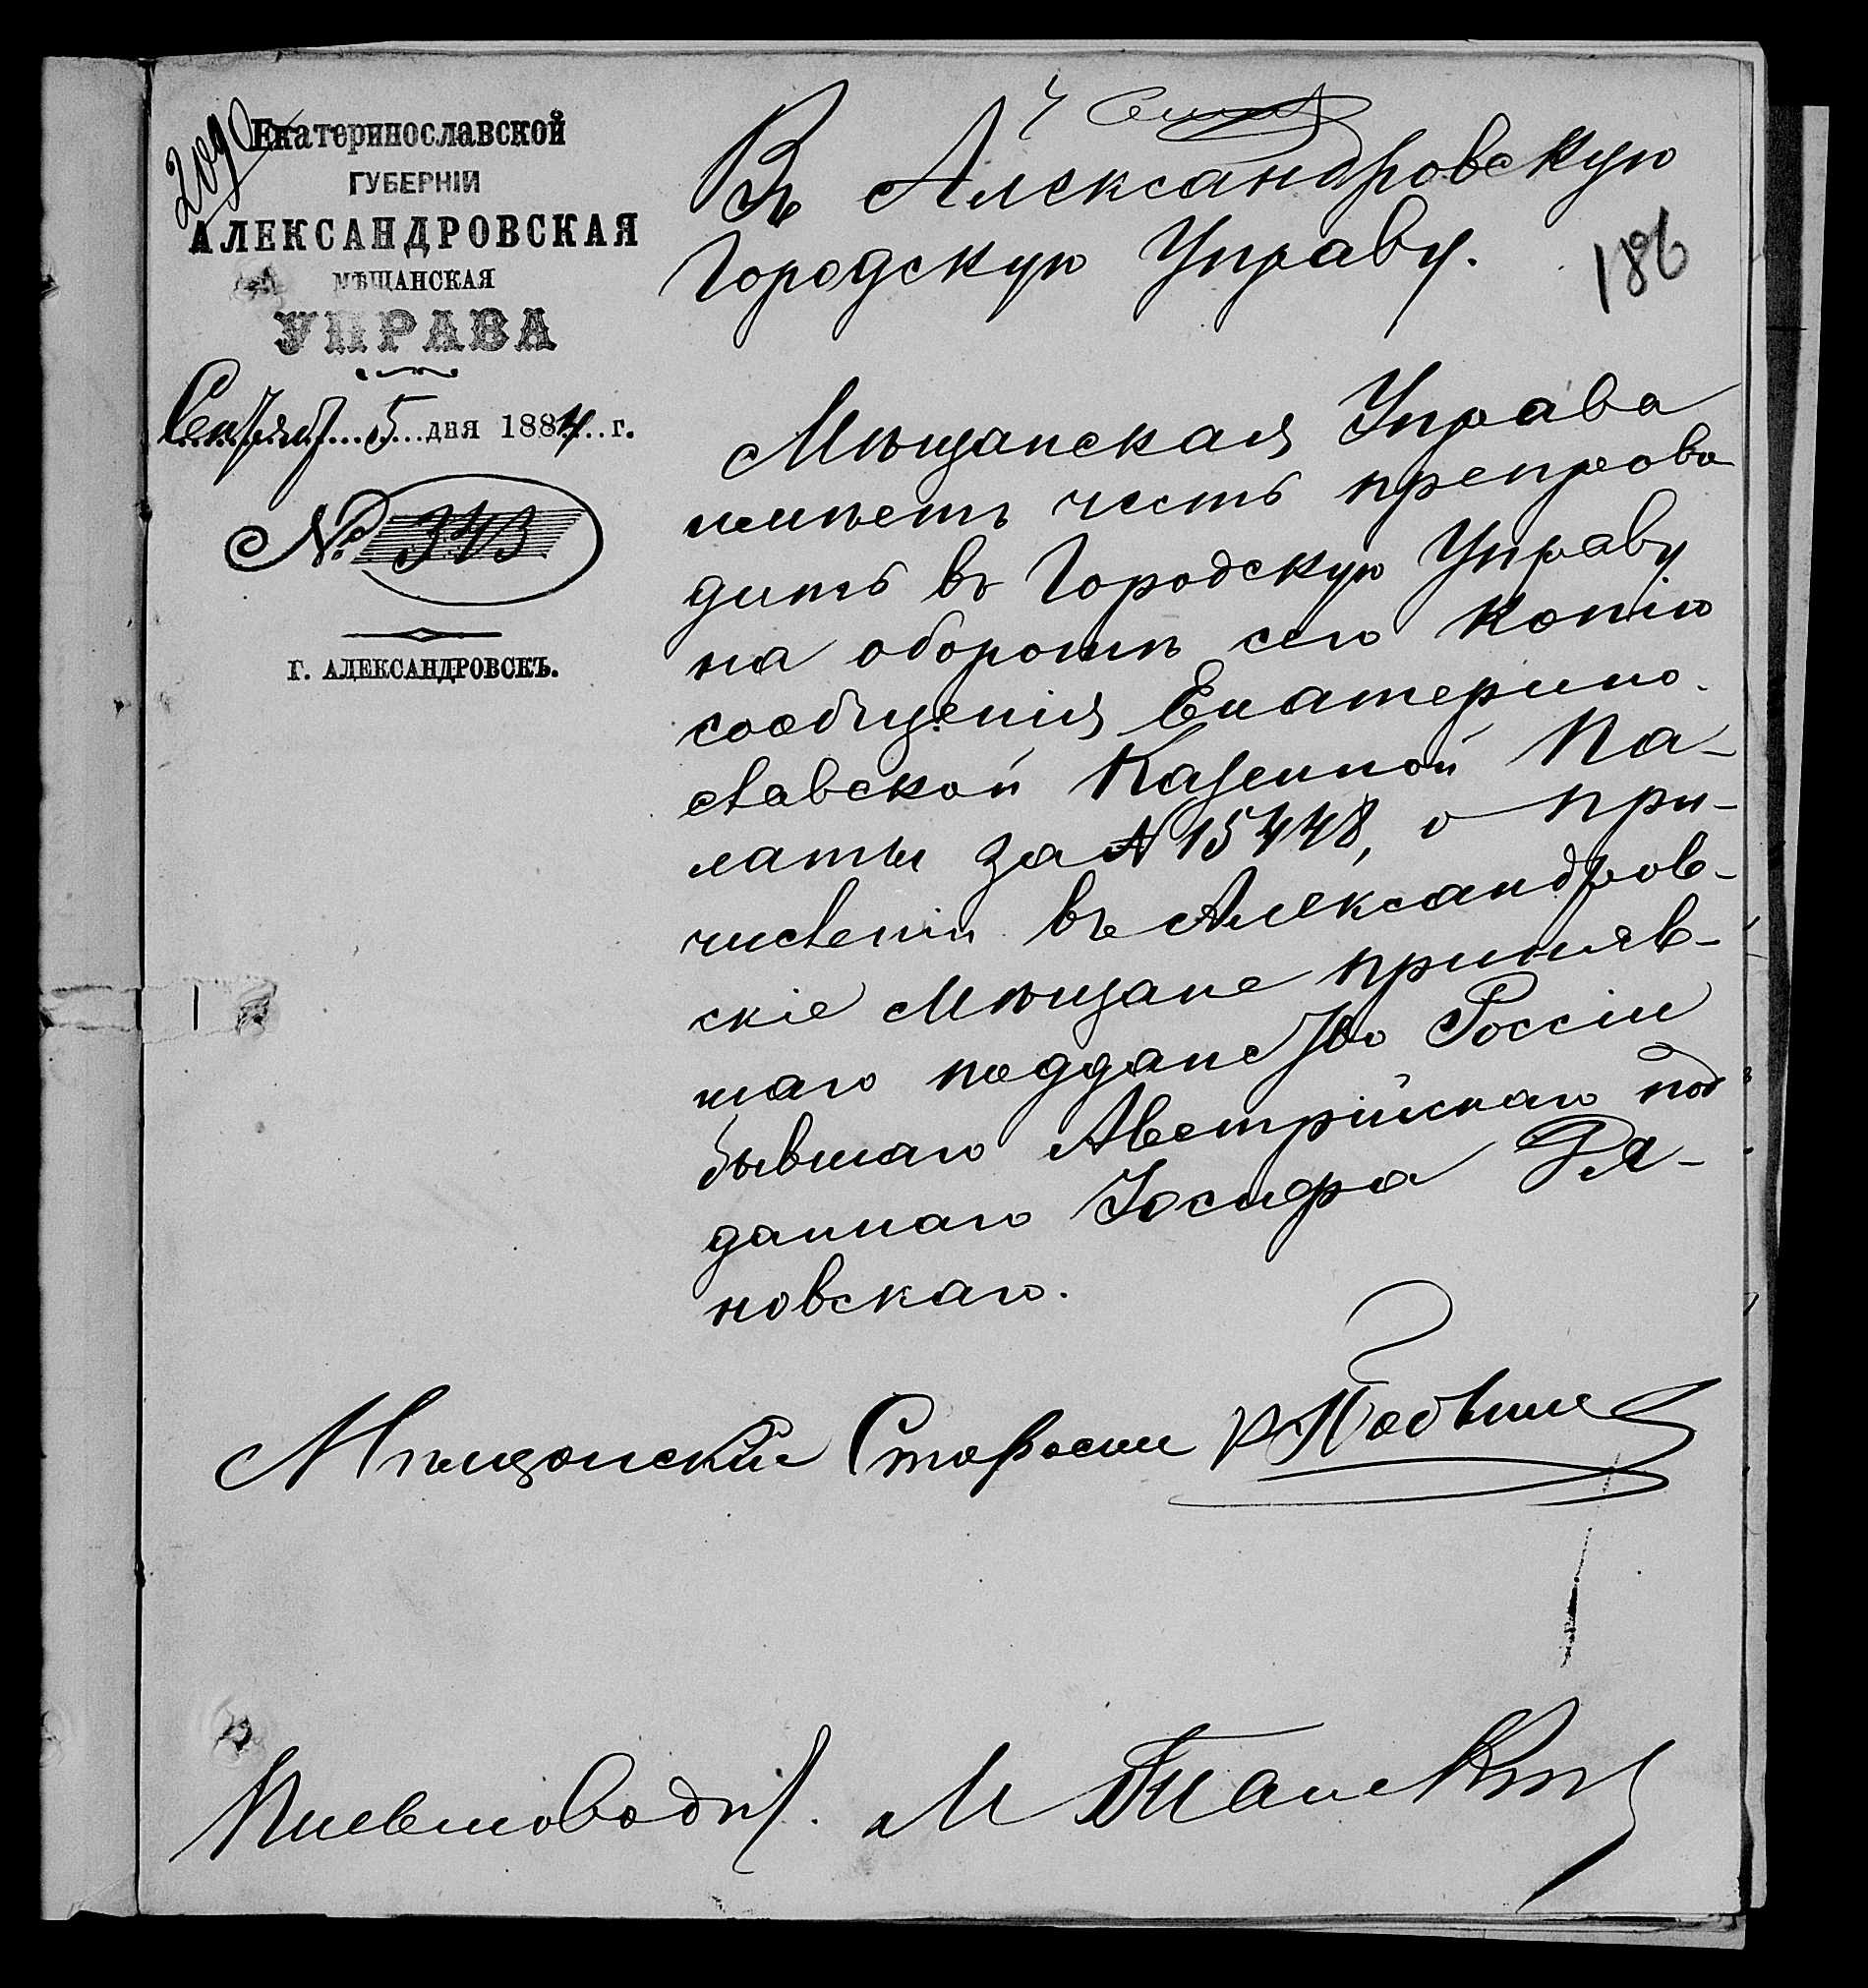 Екатеринославской
ГУБЕРНІИ
АЛЕКСАНДРОВСКАЯ
МѢЩАНСКАЯ
УПРАВА
Сентября 5 дня 1884 г.
№ 343
Г. АЛЕКСАНДРОВСКЪ.
Въ Александровскую
Городскую Управу.
186
Мѣщанская Управа
имѣетъ честь препрово
дить въ Городскую Управу
на оборотѣ сего копію
сообщенія Екатерино-
славской Казенной Па-
латы за № 15448, о при-
численіи въ Александров-
скіе мѣщане приняв-
шаго подданство Россіи
бывшаго Австрійскаго под
даннаго Іосифа Ря-
новскаго.
Мѣщанскій Староста
Письмоводит.